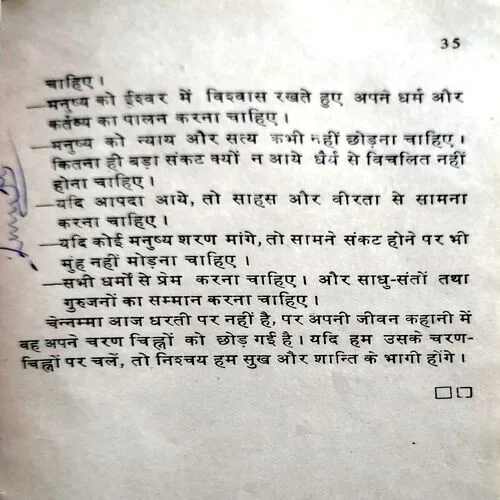 35
चाहिए।
—मनुष्य को ईश्वर में विश्वास रखते हुए अपने धर्म और
कर्तव्य का पालन करना चाहिए।
—मनुष्य को न्याय और सत्य कभी नहीं छोड़ना चाहिए।
कितना ही बड़ा संकट क्यों न आये धैर्य से विचलित नहीं
होना चाहिए।
—यदि आपदा आये, तो साहस और वीरता से सामना
करना चाहिए।
—यदि कोई मनुष्य शरण मांगे, तो सामने संकट होने पर भी
मुंह नहीं मोड़ना चाहिए।
—सभी धर्मों से प्रेम करना चाहिए। और साधु-संतों तथा
गुरुजनों का सम्मान करना चाहिए।
चेन्नम्मा आज धरती पर नहीं है, पर अपनी जीवन कहानी में
वह अपने चरण चिह्नों को छोड़ गई है। यदि हम उसके चरण-
चिह्नों पर चलें, तो निश्चय हम सुख और शान्ति के भागी होंगे।